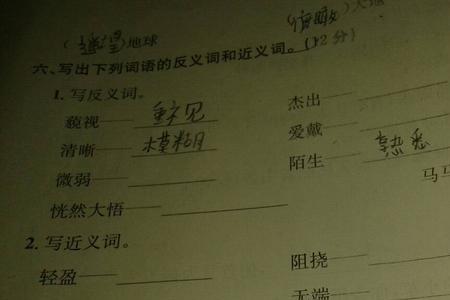 (遥望)地球 (俯瞰)大地
六、写出下列词语的反义词和近义词。(12分)
1. 写反义词。
藐视——重视 杰出——
清晰——模糊 爱戴——
微弱—— 陌生——熟悉
恍然大悟—— 马马
2. 写近义词。
轻盈—— 阻挠——
无端——